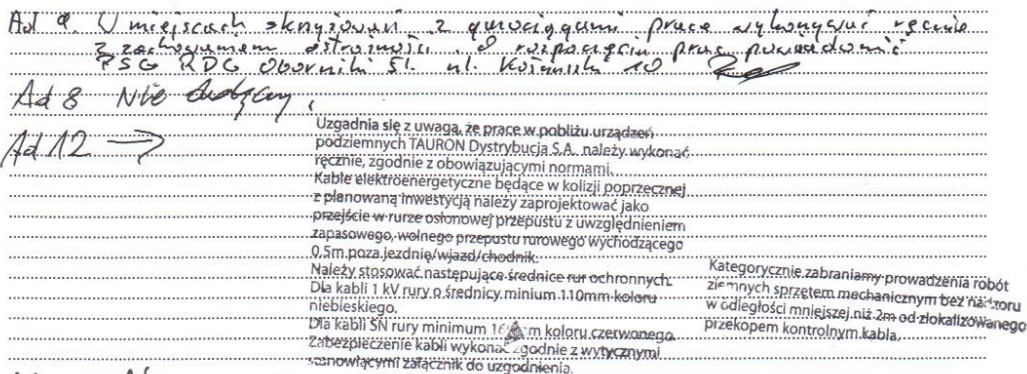 Ad 9. W miejscach skrzyżowań z gazociągami prace wykonywać ręcznie
z zachowaniem ostrożności. O rozpoczęciu prac powiadomić
PSG RDG Oborniki Śl. ul.
Ad 8 Nie dotyczy.
Ad 12 →
Uzgadnia się z uwagą, że prace w pobliżu urządzeń
podziemnych TAURON Dystrybucja S.A. należy wykonać
ręcznie, zgodnie z obowiązującymi normami.
Kable elektroenergetyczne będące w kolizji poprzecznej
z planowaną inwestycją należy zaprojektować jako
przejście w rurze osłonowej przepustu z uwzględnieniem
zapasowego, wolnego przepustu rurowego wychodzącego
0,5m poza jezdnię/wjazd/chodnik.
Należy stosować następujące średnice rur ochronnych.
Dla kabli 1 kV rury o średnicy minium 110mm koloru
niebieskiego.
Dla kabli SN rury minimum koloru czerwonego.
Zabezpieczenie kabli wykonać zgodnie z wytycznymi
stanowiącymi załącznik do uzgodnienia.
Kategorycznie zabraniamy prowadzenia robót
ziemnych sprzętem mechanicznym bez nadzoru
w odległości mniejszej niż 2m od zlokalizowanego
przekopem kontrolnym kabla.